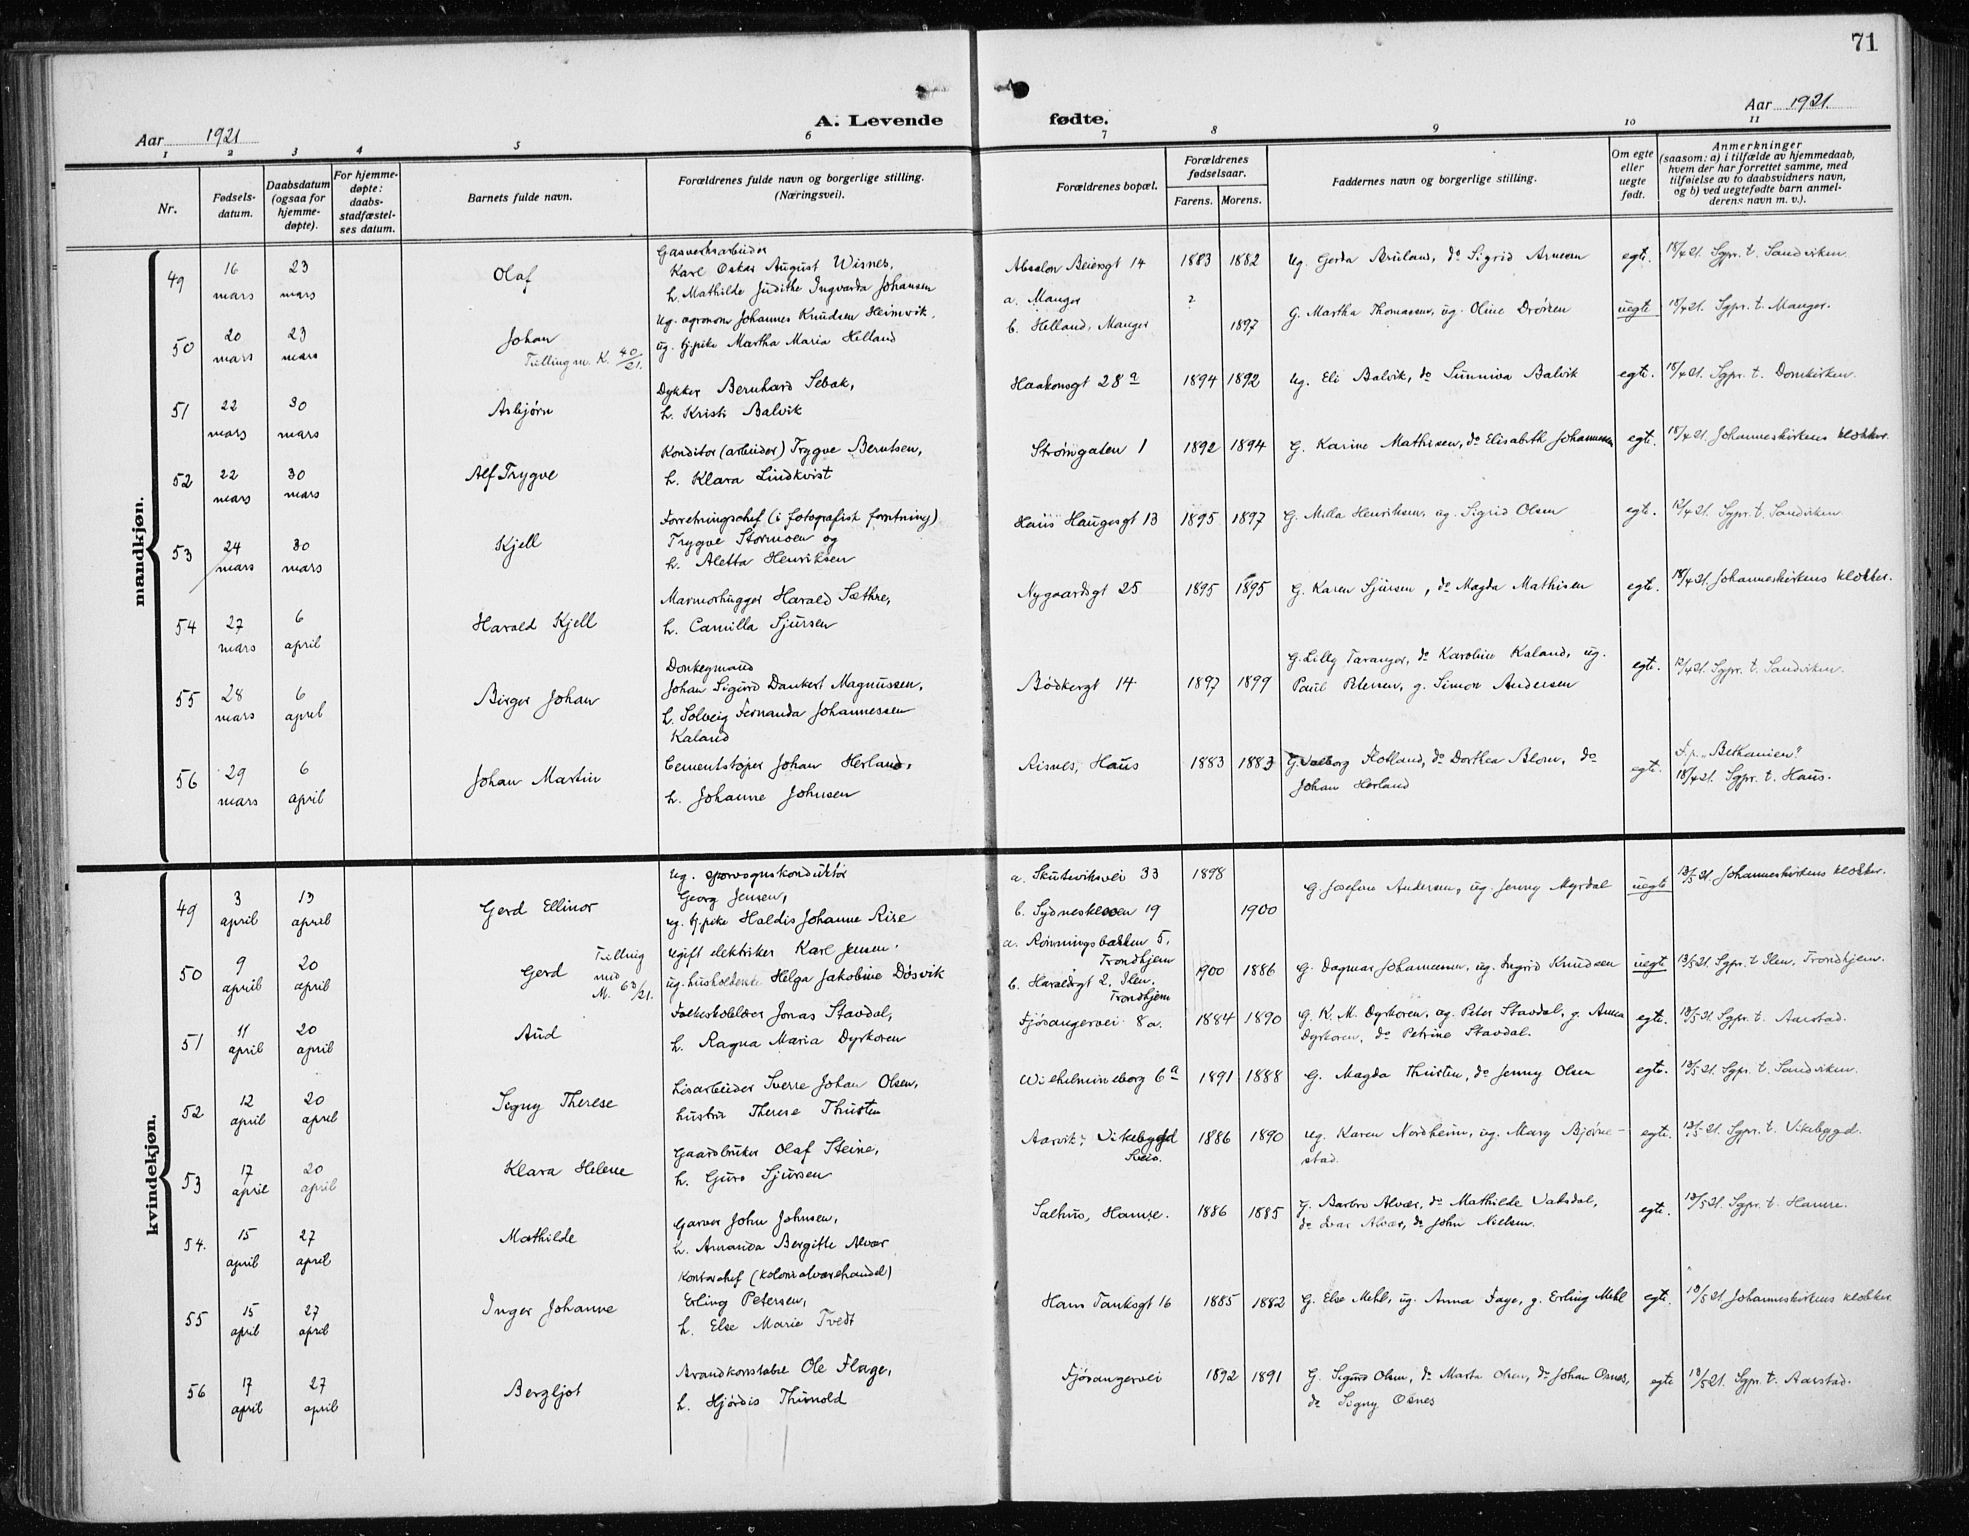 71
Aar 1921
A. Levende fødte.
Aar 1921.
1 2 3 4 5 6 7 8 9 10 11
Nr.
Fødsels-
datum.
Daabsdatum
(ogsaa for
hjemme-
døpte).
For hjemme-
døpte:
daabs-
stadfæstel-
ses datum.
Barnets fulde navn.
Forældrenes fulde navn og borgerlige stilling.
(Næringsvei).
Forældrenes bopæl.
Forældrenes
fødselsaar.
Farens. Morens.
Faddernes navn og borgerlige stilling.
Om egte
eller
uegte
født.
Anmerkninger
(saasom: a) i tilfælde av hjemmedaab,
hvem der har forrettet samme, med
tilføielse av to daabsvidners navn,
og b) ved uegtefødte barn anmel-
derens navn m. v.).
mandkjøn.
49
16 mars
23 mars
Olaf
Gasverksarbeider
Karl Oskar August Wisnes,
h. Mathilde Judithe Ingvarda Johansen
Absalon Beiersgt 14
1883 1882
ug. Gerda Bruland, do Sigrid Arnesen
egte.
18/4 21. Sgpr. t. Sandviken.
50
20 mars
23 mars
Johan
Tvilling m. K. 40/21.
Ug. agronom Johannes Knudsen Heimvik,
ug. tj.pike Martha Maria Helland
a. Manger
b. Helland, Manger
?
1897
G. Martha Thomassen, ug. Oline Drønen
uegte
18/4 21. Sgpr. t. Manger.
51
22 mars
30 mars
Asbjørn
Dykker Bernhard Sebak,
h. Kristi Balvik
Haakonsgt 28a
1894 1892
Ug. Eli Balvik, do Sunniva Balvik
egte.
18/4 21. Sgpr. t. Domkirken.
52
22 mars
30 mars
Alf Trygve
Konditor (arbeider) Trygve Berntsen,
h. Klara Lindkvist
Strømgaten 1
1892 1894
G. Karine Mathisen, do Elisabeth Johannessen
egte.
18/4 21. Johanneskirkens klokker.
53
24 mars
30 mars
Kjell
Forretningschef (i fotografisk forretning)
Trygve Stormoen og
h. Aletta Henriksen
Hans Haugesgt 13
1895 1897
G. Milla Henriksen, ug. Sigrid Olsen
egte.
12/4 21. Sgpr. t. Sandviken
54
27 mars
6 april
Harald Kjell
Marmorhugger Harald Sæthre,
h. Camilla Sjursen
Nygaardsgt 25
1895 1895
G. Karen Sjursen, do Magda Mathisen
egte.
18/4 21. Johanneskirkens klokker.
55
28 mars
6 april
Birger Johan
Donkeymand
Johan Sigurd Dankert Magnussen,
h. Solveig Fernanda Johannessen
Kaland
Bødkergt 14
1897 1899
G. Lilly Taranger, do Karoline Kaland, ug.
Paul Petersen, g. Simon Andersen
egte.
12/4 21. Sgpr. t. Sandviken.
56
29 mars
6 april
Johan Martin
Cementstøper Johan Herland,
h. Johanne Johnsen
Risnes, Haus
1883 1883
G. Valborg Flotland, do Dorthea Blom, do
Johan Herland
egte.
F. p. "Bethanien".
18/4 21. Sgpr. t. Haus.
kvindekjøn.
49
3 april
13 april
Gerd Ellinor
Ug. sporvognskonduktør
Georg Jensen,
ug. tj.pike Haldis Johanne Rise
a. Skuteviksvei 33
b. Sydneskleven 19
1898
1900
G. Josefine Andersen, ug. Jenny Myrdal
uegte
13/5 21. Johanneskirkens klokker.
50
9 april
20 april
Gerd
Tvilling
med
M. 63/21.
ugift elektriker Karl Jensen,
ug. husholderske Helga Jakobine Døsvik
a. Rønningsbakken 5,
Trondhjem
b. Haraldsgt 2, Ilen,
Trondhjem
1900 1886
G. Dagmar Johannessen, ug. Ingrid Knudsen
uegte
13/5 21. Sgpr. t. Ilen, Trondhjem.
51
11 april
20 april
Aud
Folkeskolelærer Jonas Stavdal,
h. Ragna Maria Dyrkoren
Fjøsangervei 8a.
1884 1890
G. K. M. Dyrkoren, ug. Peter Stavdal, g. Anna
Dyrkoren, do Petrine Stavdal.
egte.
13/5 21. Sgpr. t. Aarstad.
52
12 april
20 april
Signy Therese
Løsarbeider Sverre Johan Olsen,
hustru Therese Thusten
Wilhelmineborg 6a
1891 1888
G. Magda Thusten, do Jenny Olsen
egte.
13/5 21. Sgpr. t. Sandviken.
53
17 april
20 april
Klara Helene
Gaardbruker Olaf Steine,
h. Guro Sjursen
Aarvik, Vikebygd
1886 1890
ug. Karen Nordheim, ug. Mary Bjørne-
stad.
egte.
13/5 21. Sgpr. t. Vikebygd.
54.
15 april
27 april
Mathilde
Garver John Johnsen,
h. Amanda Bergitte Alvær
Salhus, Hamre.
1886 1885
G. Barbro Alvær, do Mathilde Vaksdal,
do Ivar Alvær, do John Nielsen.
egte.
13/5 21. Sgpr. t. Hamre.
55
15 april
27 april
Inger Johanne
Kontorchef (kolonialvarehandel)
Erling Petersen,
h. Else Marie Tvedt
Hans Tanksgt 16
1885 1882
G. Else Mehl, ug. Anna Faye, g. Erling Mehl
egte.
13/5 21. Johanneskirkens klokker
56
17 april
27 april
Bergljot
Brandkonstabel Ole Flage,
h. Hjørdis Thunold
Fjøsangervei
1892 1891
G. Sigurd Olsen, do Marta Olsen, do Johan Osnes,
do Signy Osnes
egte
13/5 21. Sgpr. t. Aarstad.